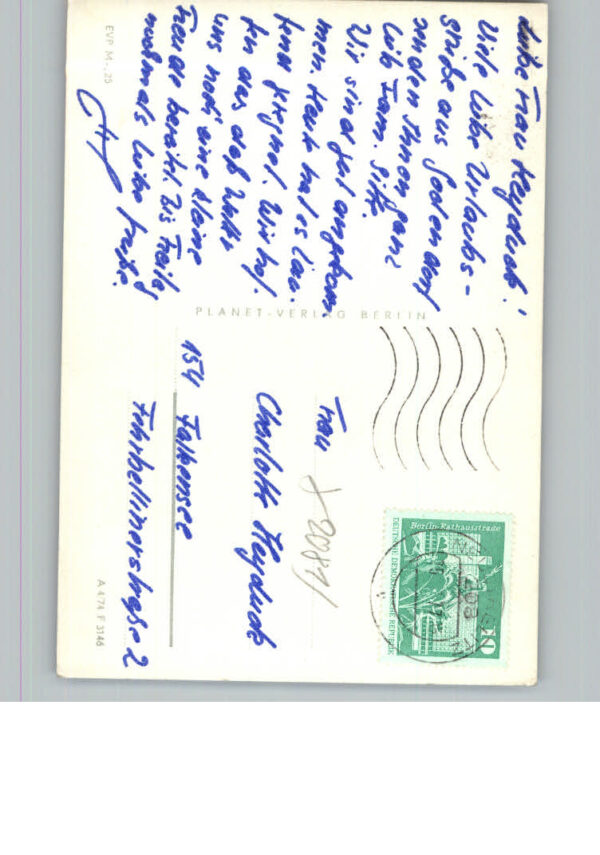 Liebe Frau Heyduck!
Viele liebe Urlaubs-
grüße aus Godendorf
senden Ihnen ganz
lieb Fam.
Wir sind gut angekom-
men. Heut hat es lau-
fend geregnet. Wir hof-
fen das daß Wetter
uns noch eine kleine
Freude bereitet. Bis Freitag
nochmals liebe Grüße.
EVP M -,25
PLANET-VERLAG BERLIN
Frau
Charlotte Heyduck
154 Falkensee
Fehrbellinerstraße 2
A 4/74 F 3146
Berlin-Rathausstraße
DEUTSCHE DEMOKRATISCHE REPUBLIK
10
208